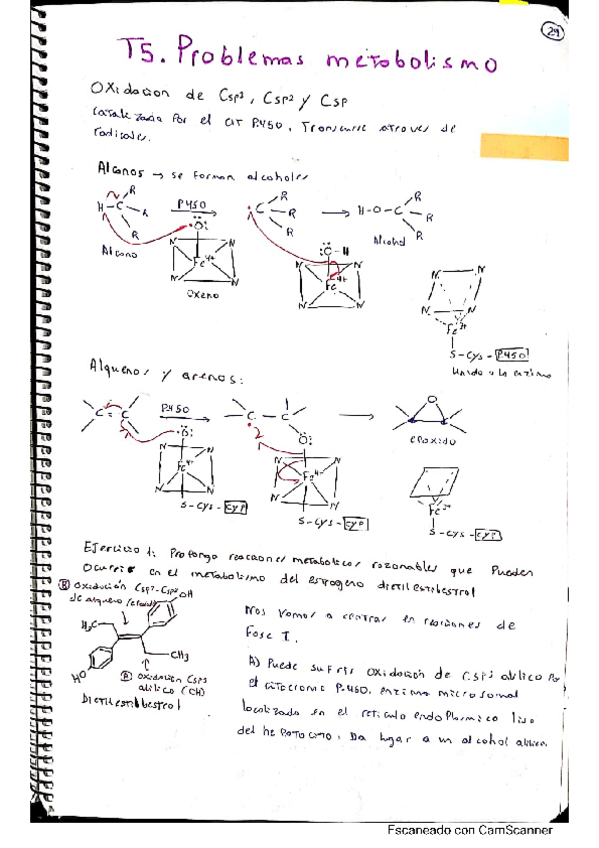 29
T5. Problemas metabolismo
Oxidación de Csp³, Csp² y Csp
Catalizada por el Cit P450, Transcurre atraves de
radicales.
Alcanos → se forman alcoholes
H-C-R R R P450 ·Ö: ·C-R R R H-O-C-R R R
Alcano Fe4+ N N N N Oxeno :Ö-H Fe4+ N N N N Alcohol
Fe3+ N N N N
S-Cys-P450
Unido a la enzima
Alquenos y arenos:
C=C P450 ·Ö: C-C Ö: O
Fe4+ N N N N Fe4+ N N N N epoxido
S-Cys-CYP S-Cys-CYP Fe3+ S-Cys-CYP
Ejercicio 1: Proponga reacciones metabolicas razonables que pueden
ocurrir en el metabolismo del estrogeno dietilestilbestrol
B oxidación Csp²-Csp²
de alqueno
OH
H₃C
CH₃
HO
A oxidación Csp3
alilico (CH)
Dietilestilbestrol
Nos vamos a centrar en reacciones de
Fase I.
A) Puede sufrir oxidación de Csp³ alilico por
el citocromo P-450, enzima microsomal
localizada en el reticulo endoplasmico liso
del hepatocito. Da lugar a un alcohol alilico
Escaneado con CamScanner